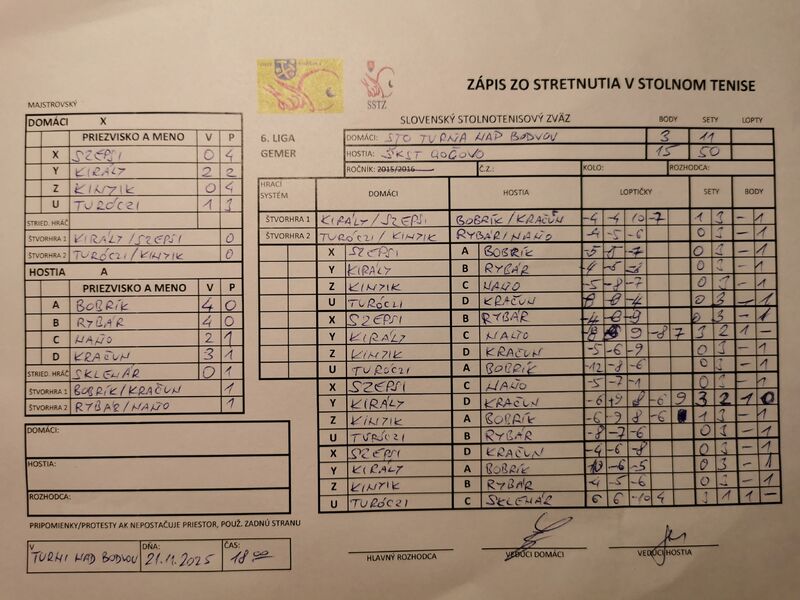 SSTZ
ZÁPIS ZO STRETNUTIA V STOLNOM TENISE
MAJSTROVSKÝ
DOMÁCI X
PRIEZVISKO A MENO V P
X SZEPSI 0 4
Y KIRÁLY 2 2
Z KINYIK 0 4
U TURÓCZI 1 3
STRIED. HRÁČ
ŠTVORHRA 1 KIRÁLY/SZEPSI 0
ŠTVORHRA 2 TURÓCZI/KINYIK 0
HOSTIA A
PRIEZVISKO A MENO V P
A BOBRÍK 4 0
B RYBÁR 4 0
C HAŇO 2 1
D KRAČUN 3 1
STRIED. HRÁČ SKLENÁR 0 1
ŠTVORHRA 1 BOBRÍK/KRAČUN 1
ŠTVORHRA 2 RYBÁR/HAŇO 1
DOMÁCI:
HOSTIA:
ROZHODCA:
PRIPOMIENKY/PROTESTY AK NEPOSTAČUJE PRIESTOR, POUŽ. ZADNÚ STRANU
V TURNI NAD BODVOU DŇA: 21.11.2025 ČAS: 18 00
SLOVENSKÝ STOLNOTENISOVÝ ZVÄZ BODY SETY LOPTY
6. LIGA DOMÁCI: STO TURŇA NAD BODVOU 3 11
GEMER HOSTIA: ŠKST GOČOVO 15 50
ROČNÍK: 2015/2016 Č.Z.: KOLO: ROZHODCA:
HRACÍ SYSTÉM DOMÁCI HOSTIA LOPTIČKY SETY BODY
ŠTVORHRA 1 KIRÁLY/SZEPSI BOBRÍK/KRAČUN -4 -4 10 -7 1 3 - 1
ŠTVORHRA 2 TURÓCZI/KINYIK RYBÁR/HAŇO -4 -5 -6 0 3 - 1
X SZEPSI A BOBRÍK -5 -5 -7 0 3 - 1
Y KIRÁLY B RYBÁR -4 -6 -8 0 3 - 1
Z KINYIK C HAŇO -5 -8 -7 0 3 - 1
U TURÓCZI D KRAČUN -4 0 3 - 1
X SZEPSI B RYBÁR -4 0 3 - 1
Y KIRÁLY C HAŇO 9 -8 7 3 2 1 -
Z KINYIK D KRAČUN -5 -6 -9 0 3 - 1
U TURÓCZI A BOBRÍK -12 -8 -6 0 3 - 1
X SZEPSI C HAŇO -5 -7 -1 0 3 - 1
Y KIRÁLY D KRAČUN -6 8 -6 9 3 2 1 0
Z KINYIK A BOBRÍK -6 -9 8 -6 1 3 - 1
U TURÓCZI B RYBÁR -8 -7 -6 0 3 - 1
X SZEPSI D KRAČUN -4 -6 -8 0 3 - 1
Y KIRÁLY A BOBRÍK -6 -5 0 3 - 1
Z KINYIK B RYBÁR -4 -5 -6 0 3 - 1
U TURÓCZI C SKLENÁR 6 6 -10 4 3 1 1 -
HLAVNÝ ROZHODCA VEDÚCI DOMÁCI VEDÚCI HOSTIA